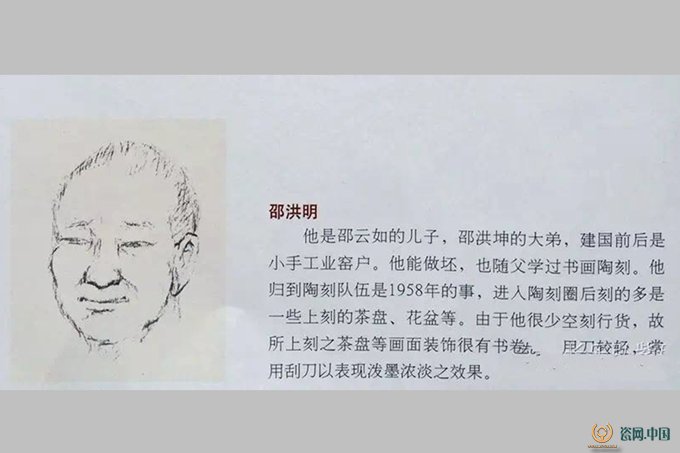 邵洪明
他是邵云如的儿子，邵洪坤的大弟，建国前后是
小手工业窑户。他能做坯，也随父学过书画陶刻。他
归到陶刻队伍是1958年的事，进入陶刻圈后刻的多是
一些上刻的茶盘、花盆等。由于他很少空刻行货，故
所上刻之茶盘等画面装饰很有书卷 用刀较轻，常
用刮刀以表现泼墨浓淡之效果。
瓷网.中国